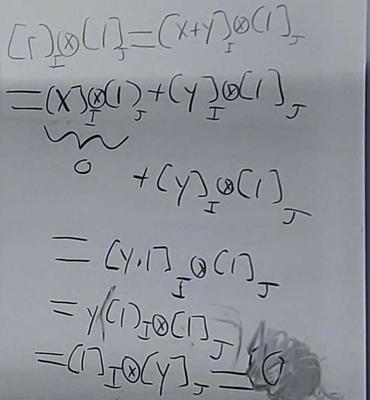 [1]_I⊗[1]_J=[x+y]_I⊗[1]_J
=[x]_I⊗[1]_J+[y]_I⊗[1]_J
0
+[y]_I⊗[1]_J
=[y·1]_I⊗[1]_J
=y([1]_I⊗[1]_J)
=[1]_I⊗[y]_J=0